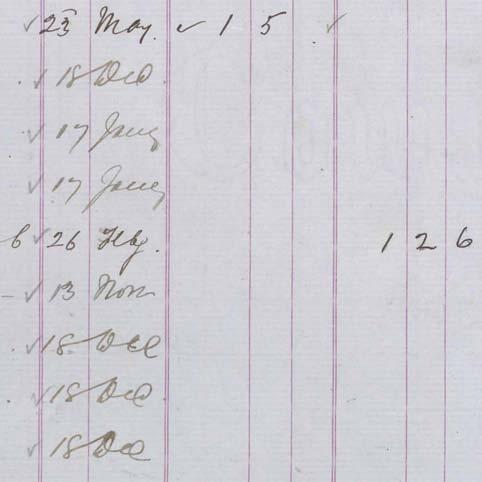 ✓ 23 May. ✓ 1 5 ✓
✓ 18 Dec
✓ 17 Jany
✓ 17 Jany
6 ✓ 26 Feby. 1 2 6
- ✓ 13 Nov
✓ 18 Dec
✓ 18 Dec
✓ 18 Dec